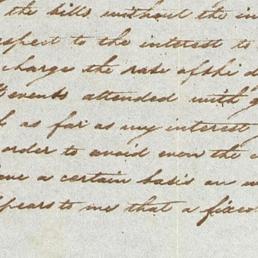 the bills without the in
respect to the interest to
charge the rate of the d
events attended with g
as far as my interest
order to avoid even the c
a certain basis on w
ppears to me that a fixed